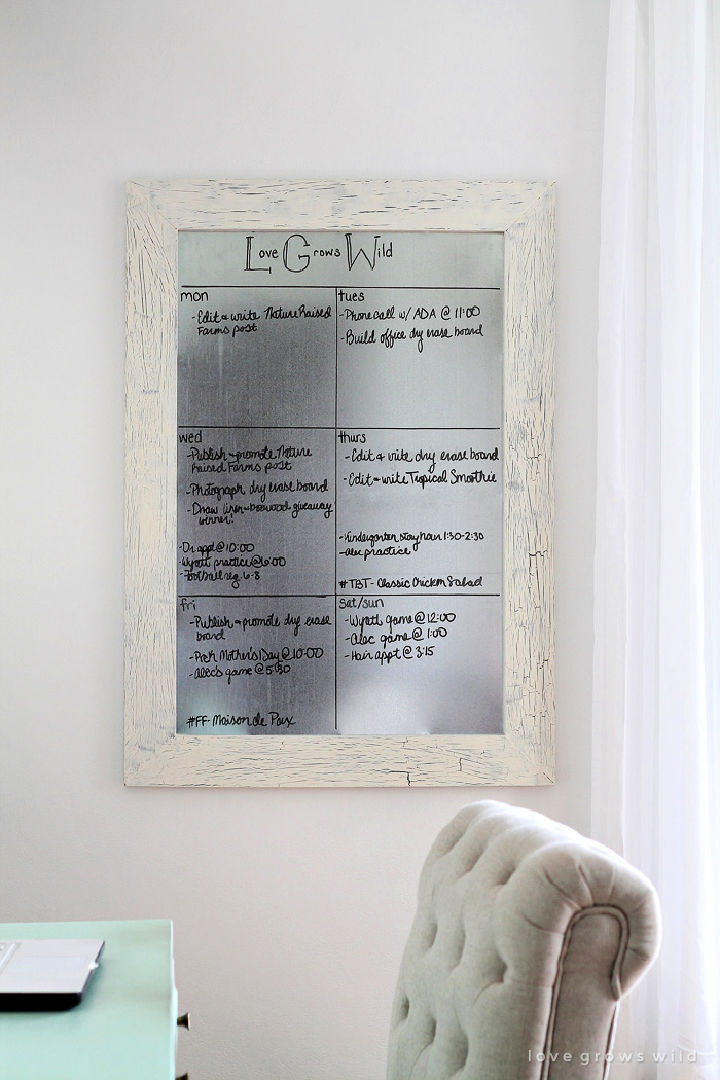 Love Grows Wild
mon
- Edit & write Nature Raised
Farms post
tues
- Phone call w/ ADA @ 11:00
- Build office dry erase board
wed
- Publish & promote Nature
Raised Farms post
- Photograph dry erase board
- Draw linen & boxwood giveaway
winner!
- Dr. appt @ 10:00
- Wyatt practice @ 6:00
- Football reg. 6-8
thurs
- Edit & write dry erase board
- Edit & write Tropical Smoothie
- Kindergarten story hour 1:30-2:30
- alec practice
#TBT - Classic Chicken Salad
fri
- Publish & promote dry erase
board
- PreK Mother's Day @ 10:00
- alec's game @ 5:30
#FF - Maison de Pax
sat/sun
- Wyatt game @ 12:00
- Alec game @ 1:00
- Hair appt @ 3:15
love grows wild